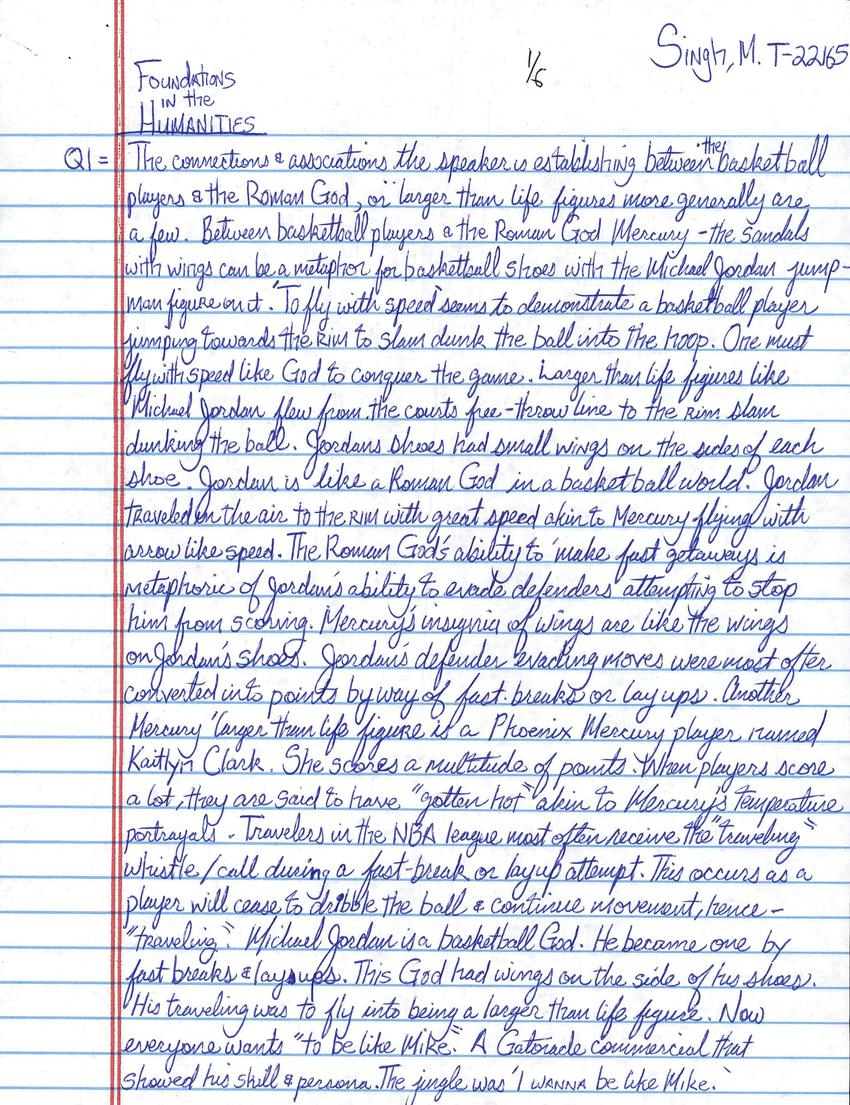 Singh, M. T-22165
1/6
Foundations
in the
Humanities
Q1 = The connections & associations the speaker is establishing between the basketball
players & the Roman God, or "larger than life figures more generally are
a few. Between basketball players & the Roman God Mercury - the sandals
with wings can be a metaphor for basketball shoes with the Michael Jordan jump-
man figure on it. "To fly with speed" seems to demonstrate a basketball player
jumping towards the rim to slam dunk the ball into the hoop. One must
fly with speed like God to conquer the game. Larger than life figures like
Michael Jordan flew from the courts free-throw line to the rim slam
dunking the ball. Jordans shoes had small wings on the sides of each
shoe. Jordan is like a Roman God in a basketball world. Jordan
traveled in the air to the rim with great speed akin to Mercury flying with
arrow like speed. The Roman God's ability to 'make fast getaways is
metaphoric of Jordan's ability to evade defenders attempting to stop
him from scoring. Mercury's insignia of wings are like the wings
on Jordan's shoes. Jordan's defender evading moves were most often
converted into points by way of fast breaks or lay ups. Another
Mercury "larger than life figure is a Phoenix Mercury player named
Kaitlyn Clark. She scores a multitude of points. When players score
a lot, they are said to have "gotten hot" akin to Mercury's temperature
portrayals. Travelers in the NBA league most often receive the "traveling"
whistle/call during a fast-break or layup attempt. This occurs as a
player will cease to dribble the ball & continue movement, hence -
"traveling". Michael Jordan is a basketball God. He became one by
fast breaks & layups. This God had wings on the side of his shoes.
His traveling was to fly into being a larger than life figure. Now
everyone wants "to be like Mike". A Gatorade commercial that
showed his skill & persona. The jingle was 'I wanna be like Mike.'